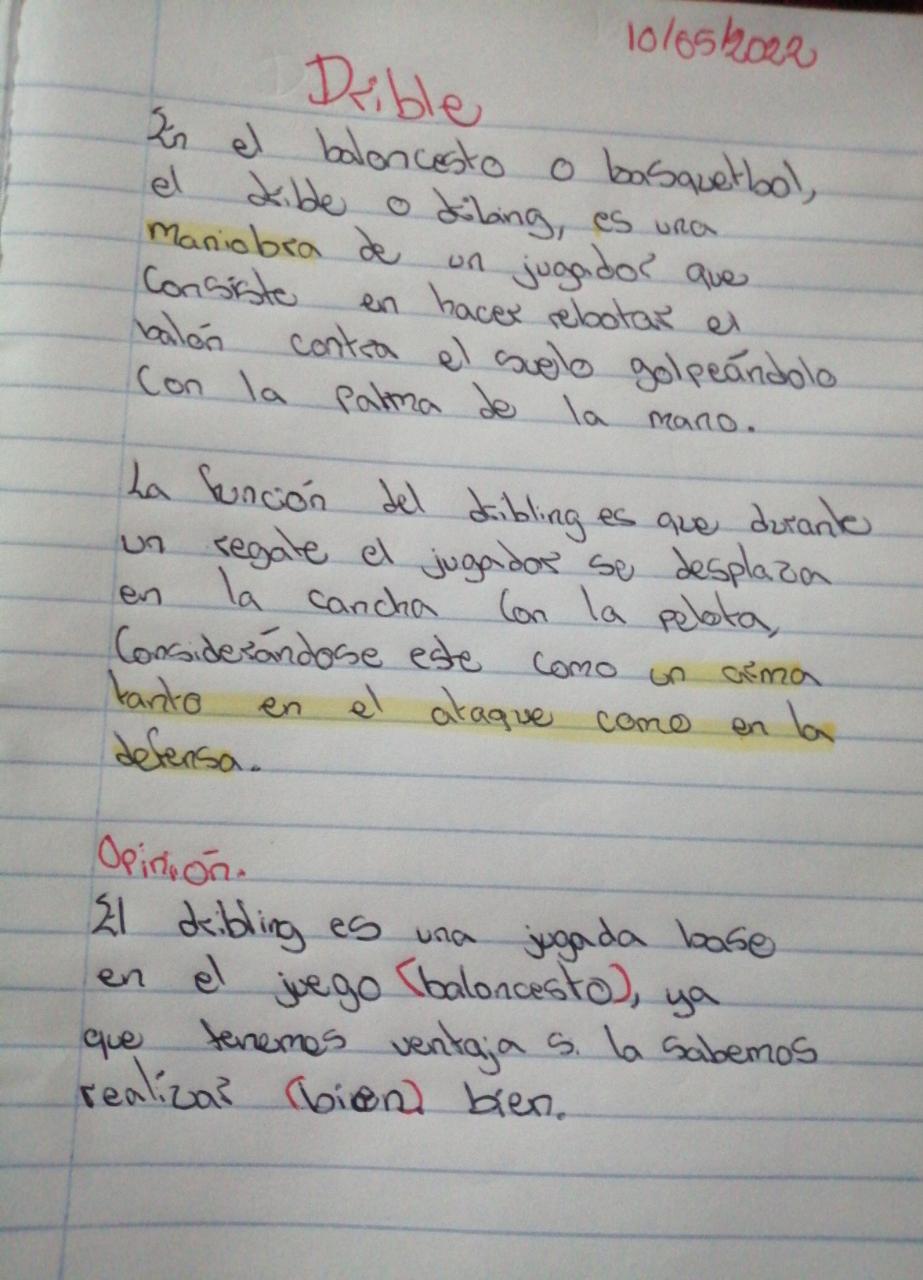 10/05/2022
Drible
En el baloncesto o basquetbol,
el drible o dribing, es una
maniobra de un jugador que
Consiste en hacer rebotar el
balón contra el suelo golpeándolo
Con la palma de la mano.
La función del dribling es que durante
un regate el jugador se desplaza
en la cancha Con la pelota,
Considerándose este como un arma
tanto en el ataque como en la
defensa.
Opinión.
El dribling es una jugada base
en el juego (baloncesto), ya
que tenemos ventaja si la sabemos
realizar (bien) bien.